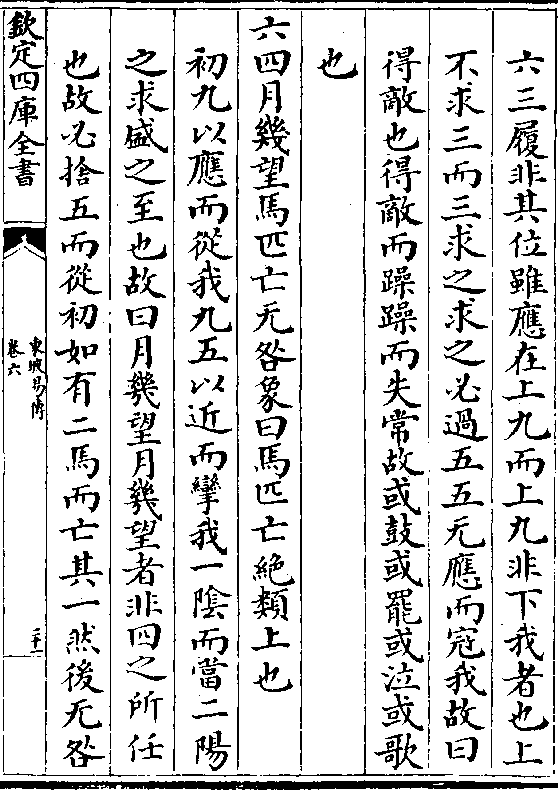 六三履非其位雖應在上九而上九非下我者也上
不求三而三求之求之必過五五无應而寇我故曰
得敵也得敵而躁躁而失常故或鼓或罷或泣或歌
也
六四月幾望馬匹亡无咎象曰馬匹亡絶類上也
初九以應而從我九五以近而攣我一陰而當二陽
之求盛之至也故曰月幾望月幾望者非四之所任
也故必捨五而從初如有二馬而亡其一然後无咎
欽定四庫全書
東坡易傳
卷六
二十一